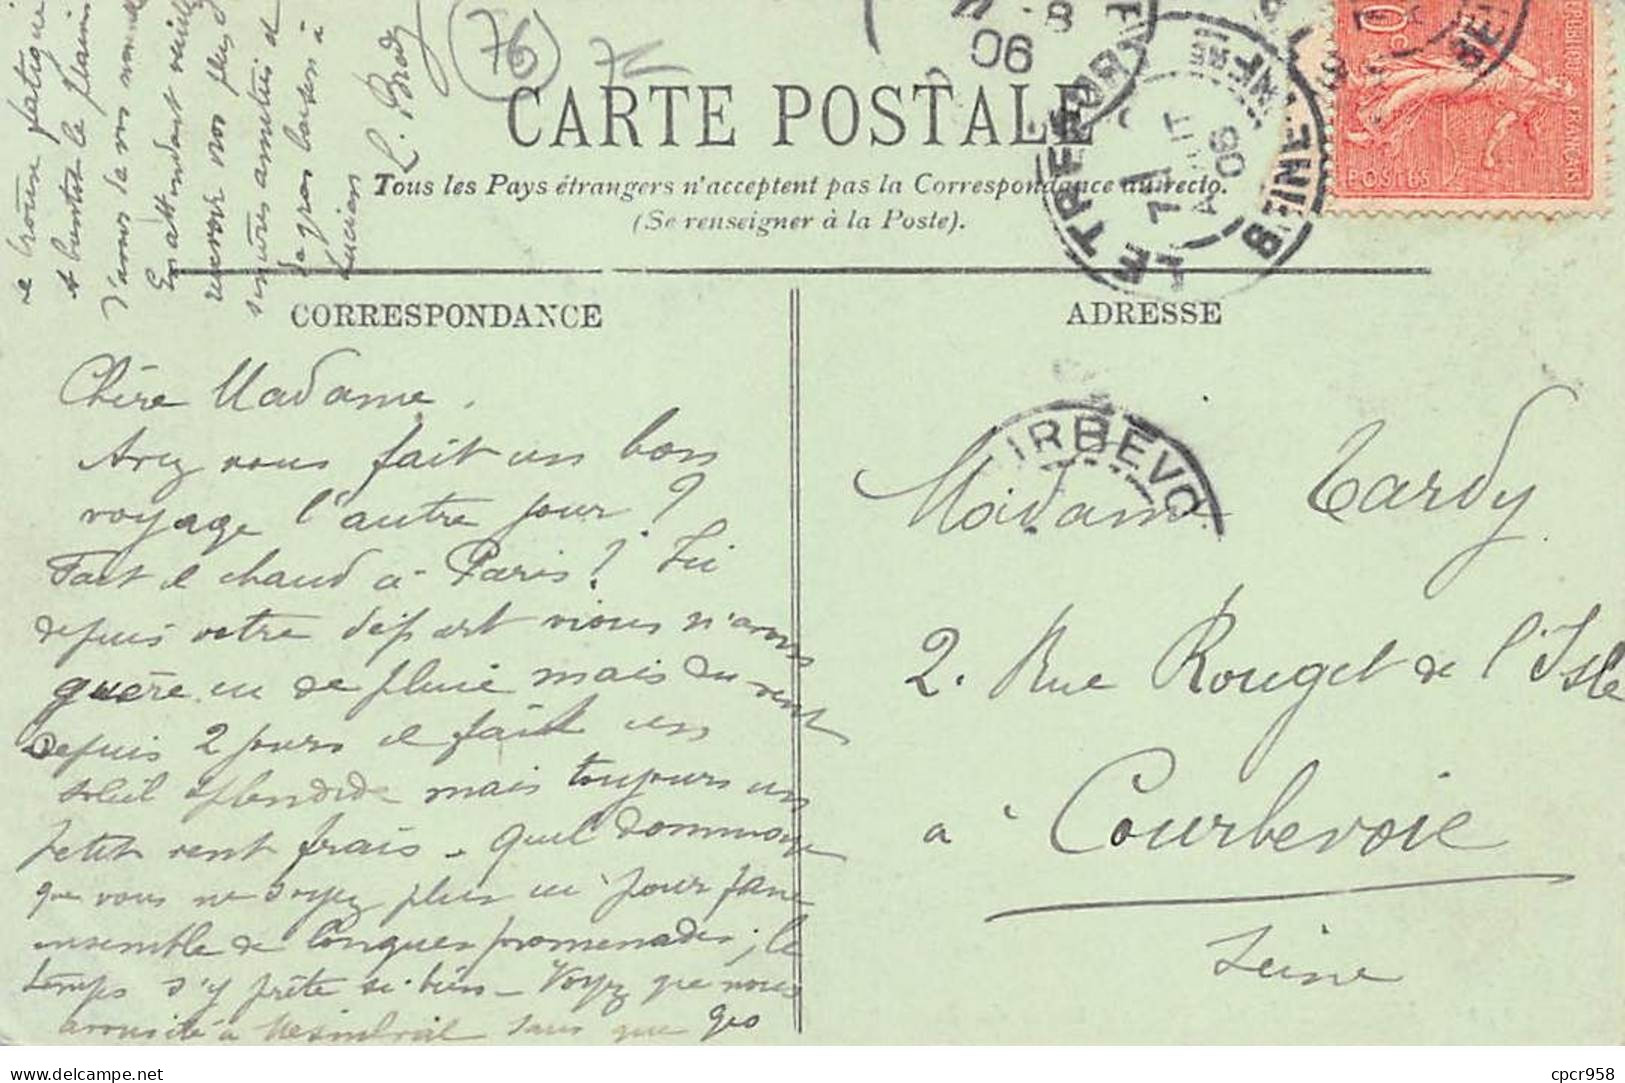 CARTE POSTALE
Tous les Pays étrangers n'acceptent pas la Correspondance au recto.
(Se renseigner à la Poste).
CORRESPONDANCE
Chère Madame,
Avez vous fait un bon
voyage l'autre jour ?
Fait il chaud à Paris ? Ici
depuis votre départ nous n'avons
guère eu de pluie mais du vent
depuis 2 jours il fait un
soleil splendide mais toujours un
petit vent frais - quel dommage
que vous ne soyez plus ici pour faire
ensemble de longues promenades ; le
temps s'y prête si bien - Voyez que nous
à sans que Géo
se trouve fatigué
et bientôt le plaisir
d'avoir de vos nouvelles
En attendant veuillez
recevoir nos plus
sincères amitiés et
de gros baisers à
Lucien
L.
76
ADRESSE
Madame Tardy
2. Rue Rouget de l'Isle
à Courbevoie
Seine
LE TREPORT
SEINE INFRE
7
AOUT
06
8
06
IRBEVO
POSTES
FRANÇAIS
cpcr958